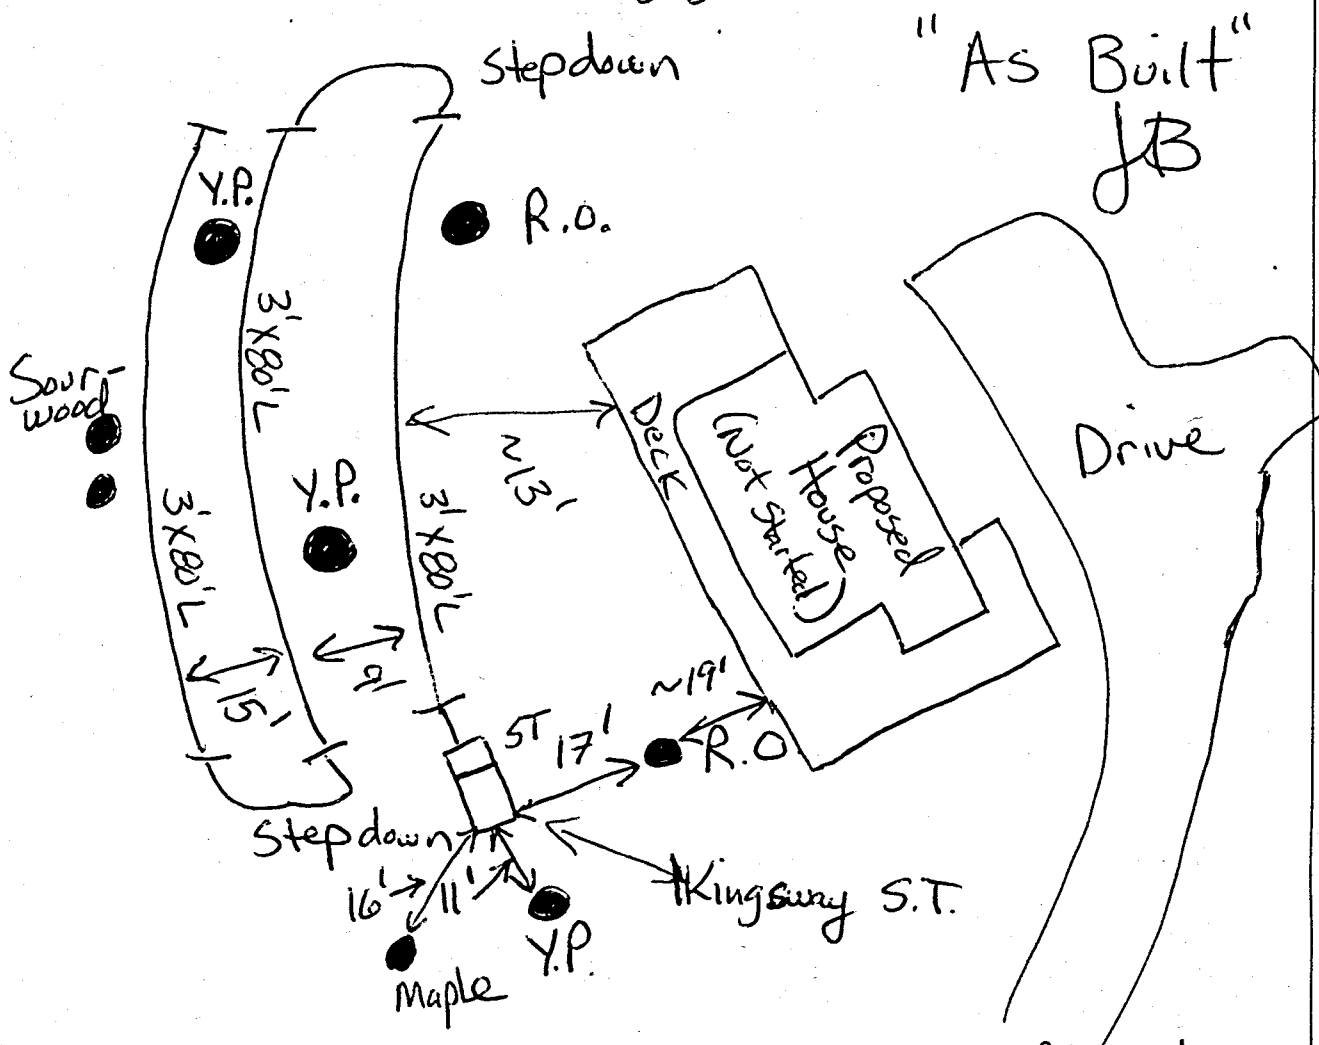 Stepdown
"As Built"
JB
Y.P.
R.O.
3'X80'L
Sour-
wood
~13'
Deck
Proposed
House
(Not Started)
Drive
Y.P.
3'X80'L
3'X80'L
15'
9'
~19'
ST
17'
R.O
Stepdown
16'
11'
Kingsway S.T.
Y.P.
Maple